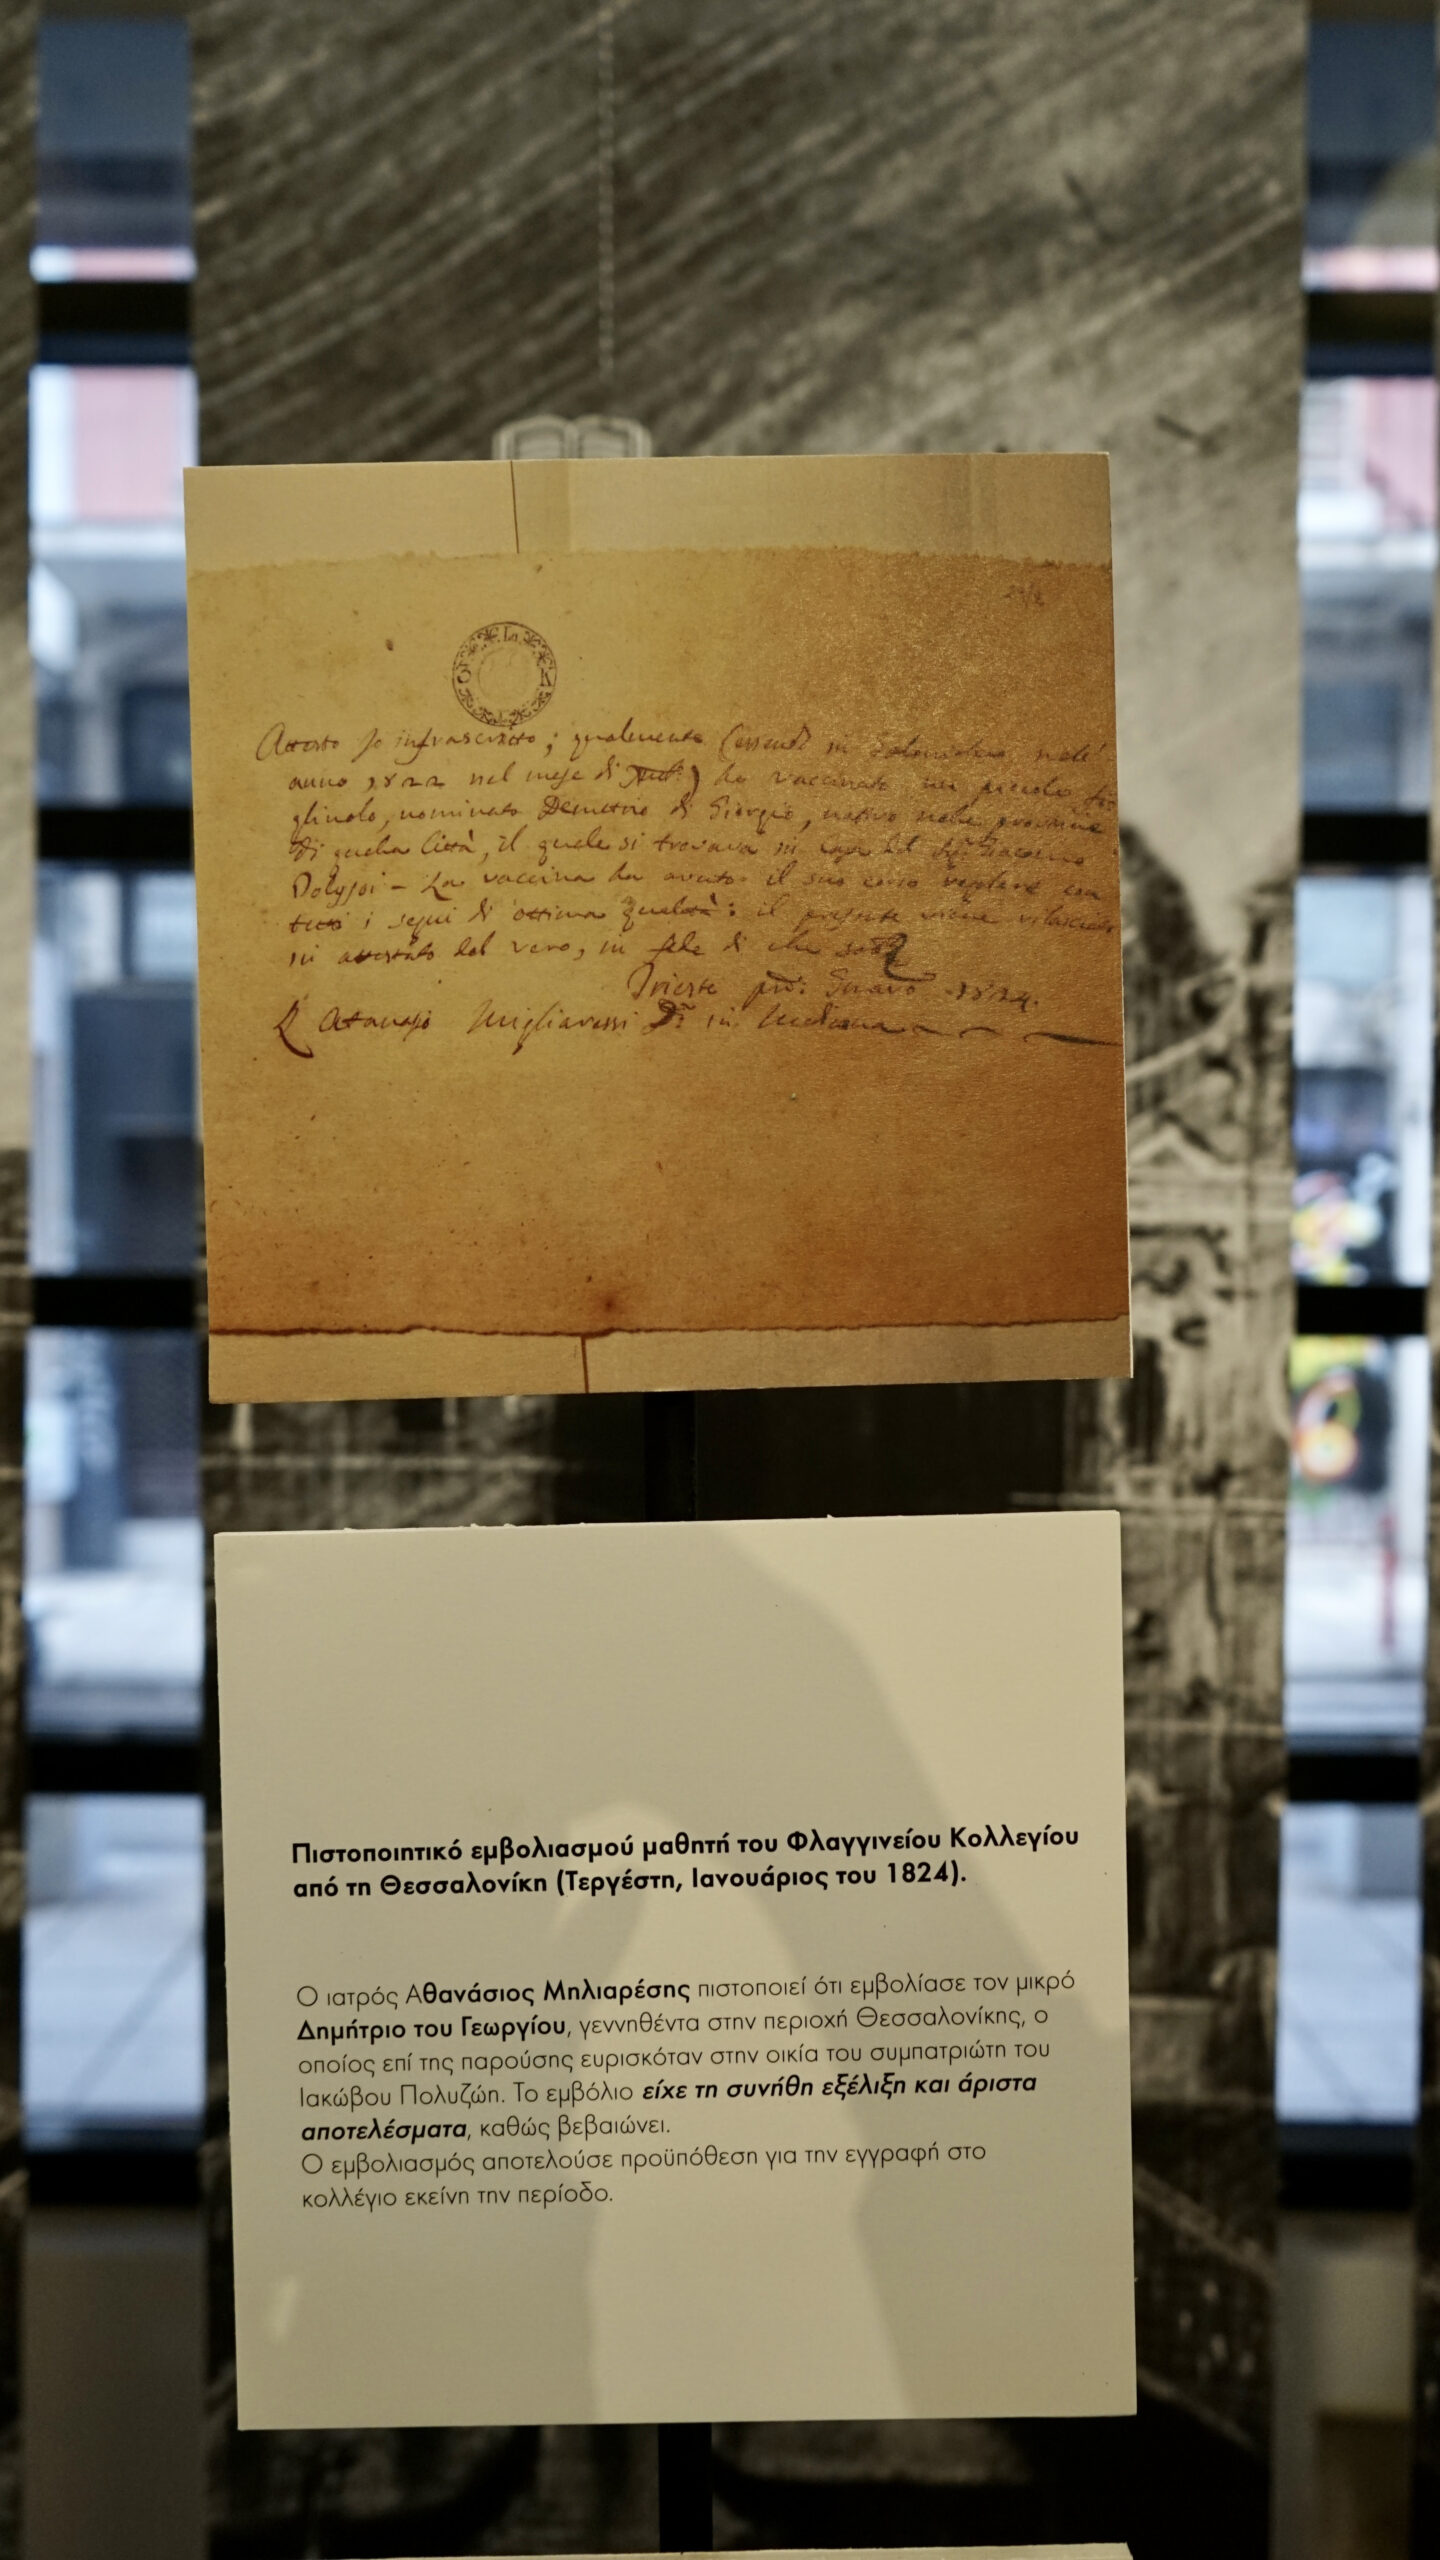 Attesto Io infrascritto; qualmente (essendo in Salonichio nell'
anno 1822 nel mese di ) ho vaccinato un piccolo fi-
gliuolo, nominato Demetrio di Giorgio, nativo nelle provincie
di quella Città, il quale si trovava in Casa del Giacomo
Polyzoi - La vaccina ha avuto il suo corso regolare con
tutti i segni di ottima qualità: il presente viene rilasciato
in attestato del vero, in fede di che
Trieste 1824.
Attanasio Migliaressi Dr in Medicina
Πιστοποιητικό εμβολιασμού μαθητή του Φλαγγινείου Κολλεγίου
από τη Θεσσαλονίκη (Τεργέστη, Ιανουάριος του 1824).
Ο ιατρός Αθανάσιος Μηλιαρέσης πιστοποιεί ότι εμβολίασε τον μικρό
Δημήτριο του Γεωργίου, γεννηθέντα στην περιοχή Θεσσαλονίκης, ο
οποίος επί της παρούσης ευρισκόταν στην οικία του συμπατριώτη του
Ιακώβου Πολυζώη. Το εμβόλιο είχε τη συνήθη εξέλιξη και άριστα
αποτελέσματα, καθώς βεβαιώνει.
Ο εμβολιασμός αποτελούσε προϋπόθεση για την εγγραφή στο
κολλέγιο εκείνη την περίοδο.